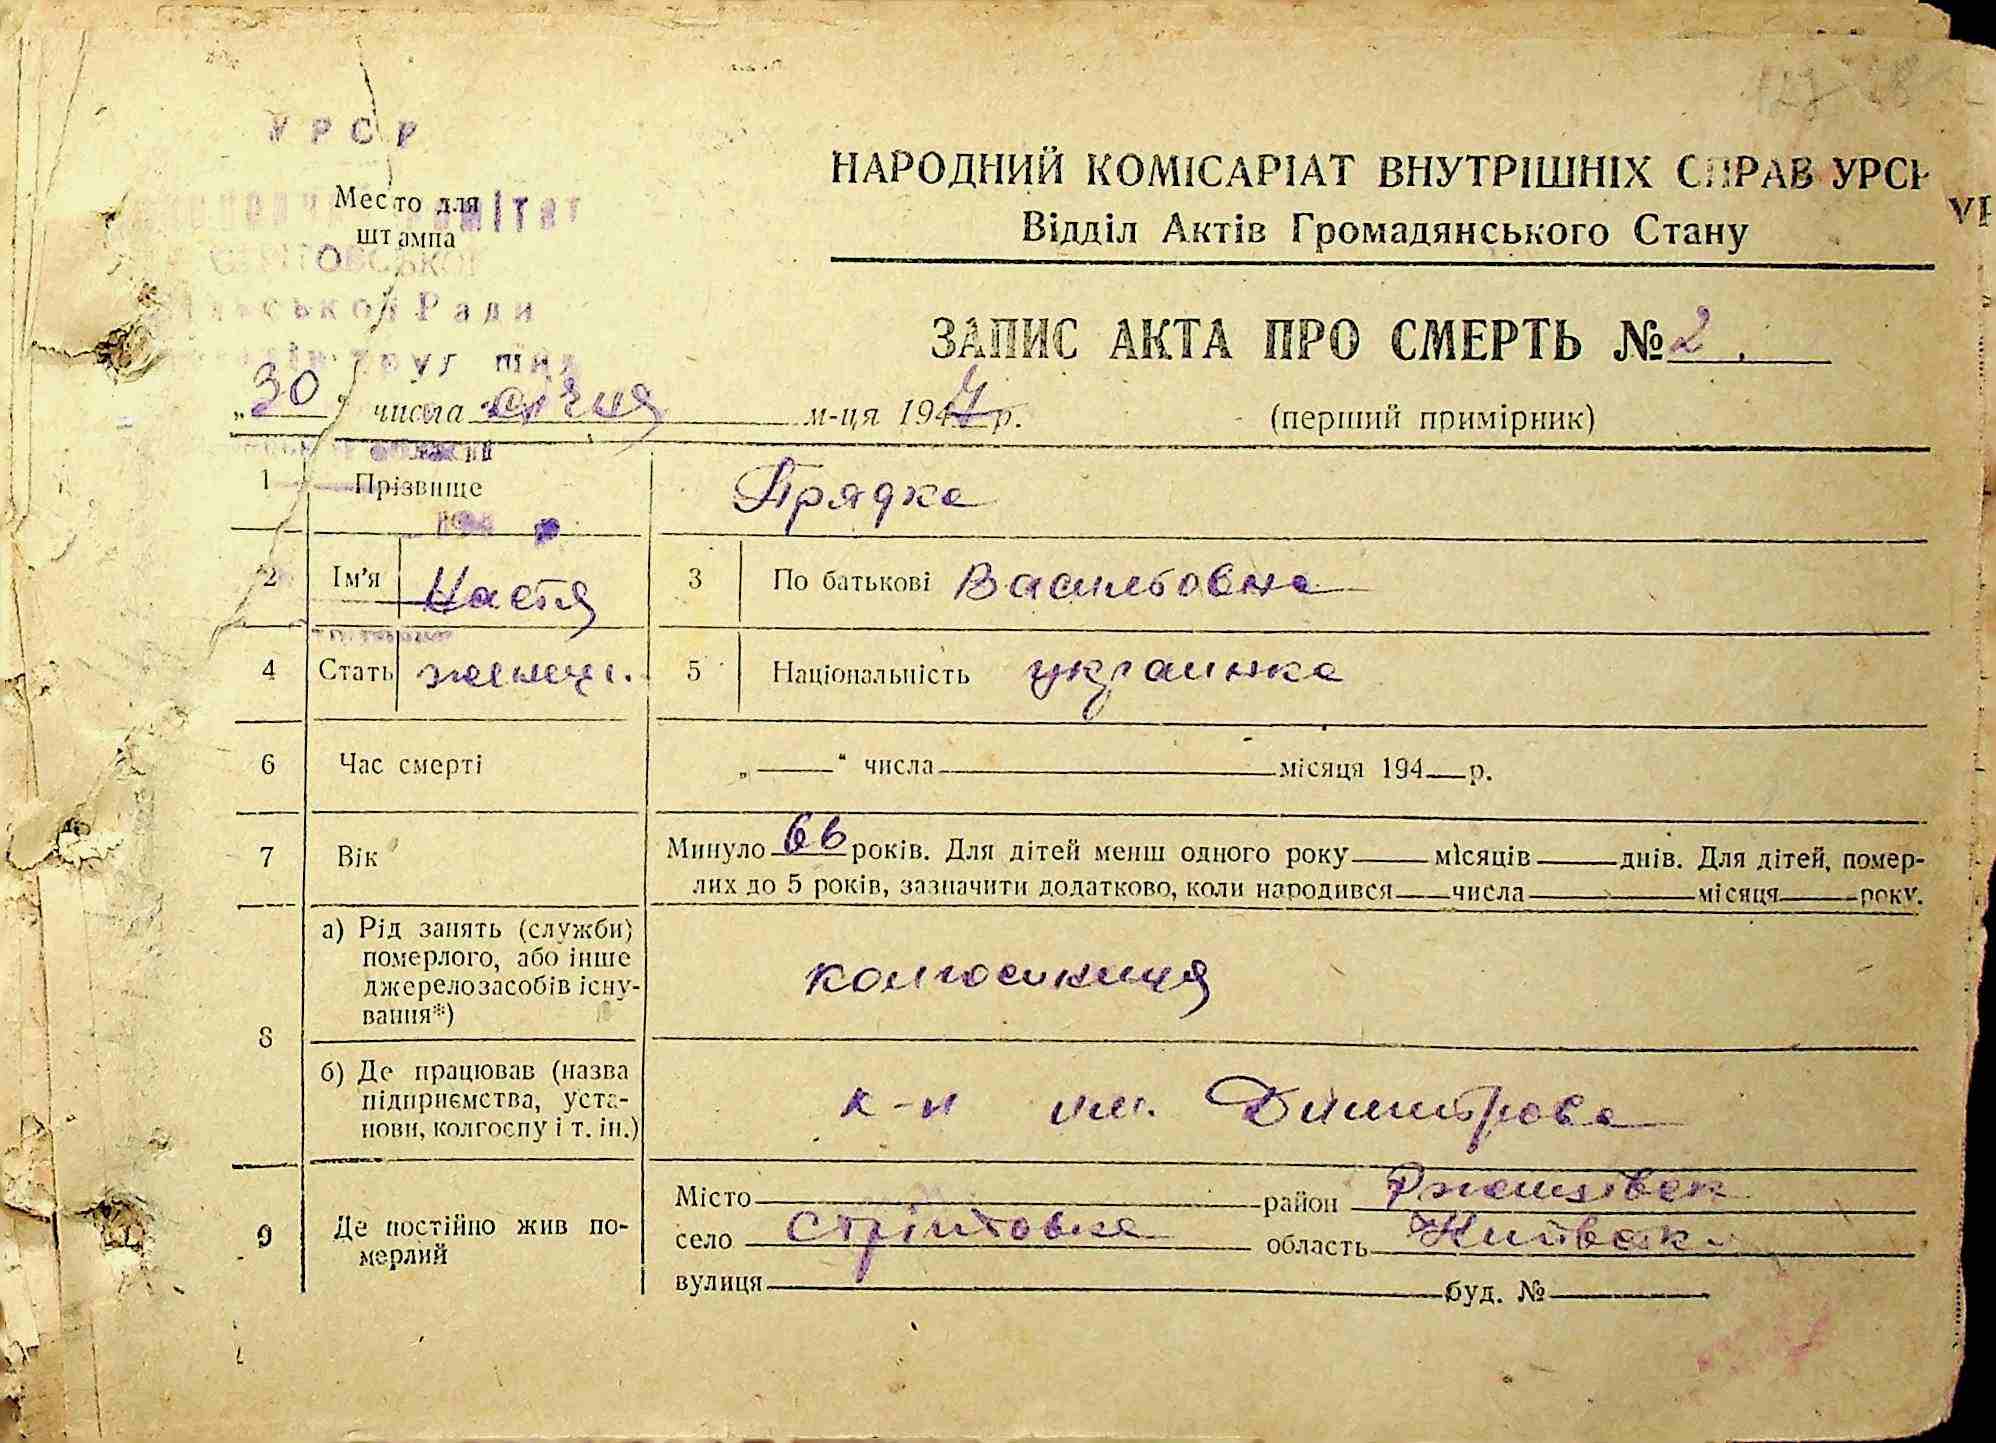 УРСР
Место для
штампа
НАРОДНИЙ КОМІСАРІАТ ВНУТРІШНІХ СПРАВ УРСР
Відділ Актів Громадянського Стану
ЗАПИС АКТА ПРО СМЕРТЬ № 2.
„30“ числа січня м-ця 1944 р.
(перший примірник)
1 Прізвище Прядка
2 Ім'я Настя 3 По батькові Васильовна
4 Стать жіноч. 5 Національність украинка
6 Час смерті „ “ числа місяця 194 р.
7 Вік Минуло 66 років. Для дітей менш одного року місяців днів. Для дітей, помер-
лих до 5 років, зазначити додатково, коли народився числа місяця року.
8 а) Рід занять (служби)
померлого, або інше
джерело засобів існу-
вання*)
колгоспниця
б) Де працював (назва
підприємства, уста-
нови, колгоспу і т. ін.)
к-п им. Димитрова
9 Де постійно жив по-
мерлий
Місто район Ржищівск
село Стрітовка область Київск.
вулиця буд. №